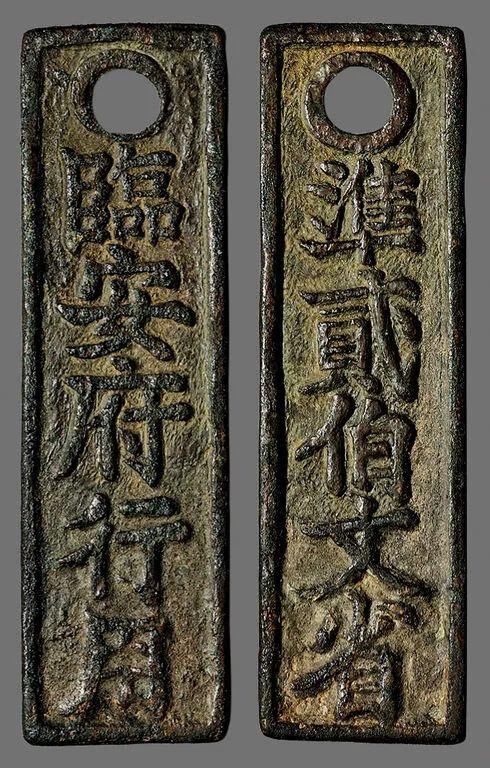 臨安府行用
準貳伯文省